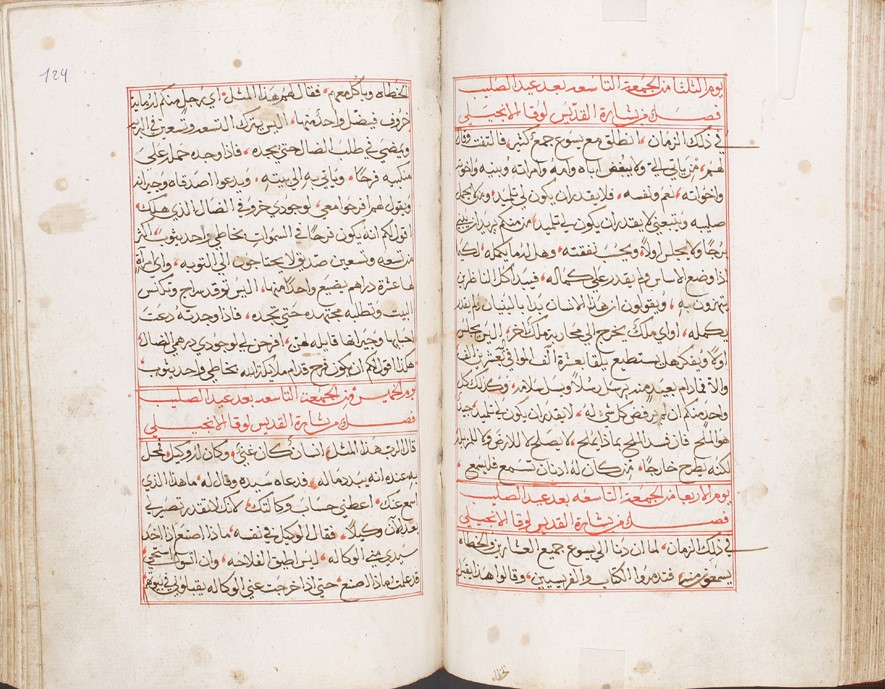 يوم الثلثا من الجمعة التاسعه بعد عيد الصليب
فصل من بشارة القديس لوقا الانجيلي
في ذلك الزمان، انطلق مع يسوع جمع كثير، فالتفت وقال
لهم، من ياتي الي ولا يبغض اباه وامه وامراته وبنيه واخوته
واخواته، نعم ونفسه، فلا يقدر ان يكون لي تلميذ، ومن لا يحمل
صليبه ويتبعني لا يقدر ان يكون لي تلميدا، من منكم يريد ان يبني
برجًا ولا يجلس اولاً، ويحسب نفقته، وهل له ما يكمله، لكيلا
اذا وضع الاساس ولم يقدر على كماله، فيبدا كل الناظرين
يتهزون به، ويقولون ان هذا الانسان بدا بالبنيان ولم يقدر
يكمله، او اي ملك يخرج الي محاربة ملك اخر، اليس يجلس
اولاً ويفكر هل يستطيع يلقا بعشرة الف الموافي بعشرين الف
والا فما دام بعيد منه يرسل رسلاً ويسل سلامه، وكذلك كل
واحد منكم ان لم يرفض كل شي له، لا يقدر ان يكون لي تلميذ، جيد
هو الملح، فان فسد الملح بماذا يملح، لا يصلح لا للارض ولا للمزبله
لكنه يطرح خارجًا، من كان له اذنان تسمع فليسمع
يوم الاربعا من الجمعة التاسعه بعد عيد الصليب
فصل من بشارة القديس لوقا الانجيلي
في ذلك الزمان، لما ان دنا الي يسوع جميع العشارين والخطاه
يسمعون منه، فتذمروا الكتاب والفريسيين، وقالوا هذا يقبل
الخطاه
124
الخطاه وياكل معهم، فقال لهم هذا المثل، اي رجل منكم له ماية
خروف فيضل واحد منها، اليس يترك التسعه وتسعين في البريه
ويمضي في طلب الضال حتي يجده، فاذا وجده حمله علي
منكبيه فرحًا، وياتي به الي بيته، ويدعوا اصدقاه وجيرانه
ويقول لهم افرحوا معي، لوجودي خروفي الضال الذي هلك
اقول لكم انه يكون فرحًا في السموات بخاطي واحد يتوب، اكثر
من تسعه وتسعين صديق لا يحتاجون الي التوبه، واي امراه
لها عشرة دراهم يضيع واحدًا منها، اليس توقد سراج وتكنس
البيت وتطلبه مجتهده حتي تجده، فاذا وجدته دعت
احبابها وجيرانها قايله لهن، افرحن لي لوجودي درهمي الضال
هكذا اقول لكم ان يكون فرح قدام ملايكة الله بخاطي واحد يتوب
يوم الخميس من الجمعة التاسعه بعد عيد الصليب
فصل من بشارة القديس لوقا الانجيلي
قال الرب هذا المثل، انسان كان غني، وكان له وكيل، فمحل
به عنده انه يبدد ماله، فدعاه سيده وقال له، ما هذا الذي
اسمع عنك، اعطني حساب وكالتك، لانك لا تقدر تصير لي
بعد الان وكيلاً، فقال الوكيل في نفسه، ماذا اصنع اذا اخذ
سيدي مني الوكاله، ليس اطيق الفلاحه، وان اتسول استحي
قد علمت ماذا اصنع، حتي اذا خرجت عني الوكاله يقبلوني في بيوتهم